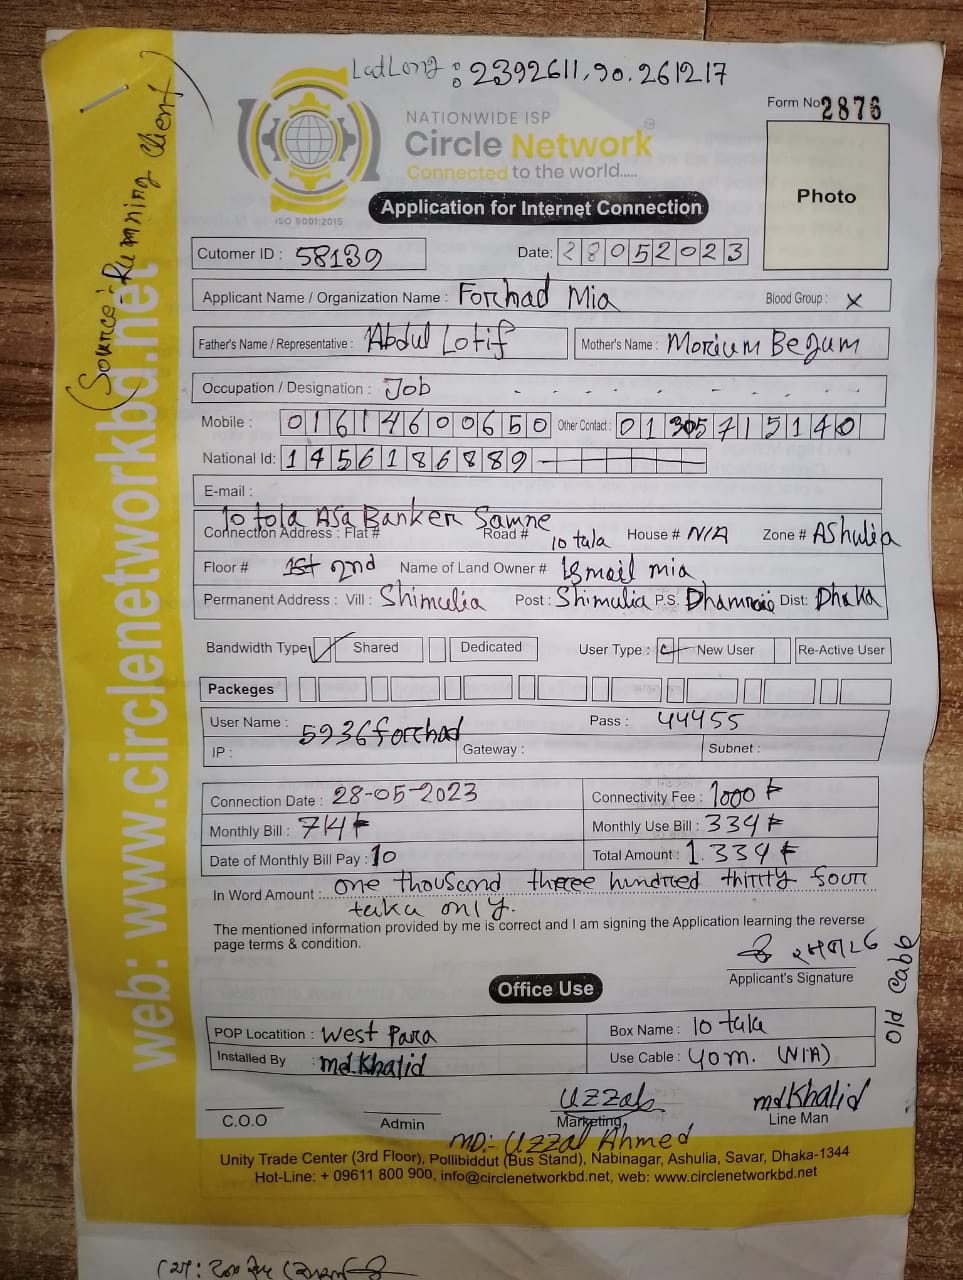 LatLong : 2392611, 90.261217
Form No 2876
NATIONWIDE ISP
Circle Network
Connected to the world.....
ISO 9001:2015
Application for Internet Connection
Photo
(Source: Running Client)
web: www.circlenetworkbd.net
Cutomer ID : 58139
Date: 28052023
Applicant Name / Organization Name : Forhad Mia
Blood Group : X
Father's Name / Representative : Abdul Lotif
Mother's Name : Morium Begum
Occupation / Designation : Job
Mobile : 01614600650 Other Contact : 01305715140
National Id: 1456186889
E-mail :
10 tola Asa Banker Samne
Connection Address : Flat # Road # 10 tala House # N/A Zone # AShulia
Floor # 2nd Name of Land Owner # Ismail mia
Permanent Address : Vill : Shimulia Post : Shimulia P.S. Dhamrai Dist: Dhaka
Bandwidth Type Shared Dedicated User Type : New User Re-Active User
Packeges
User Name : 5936forhad Pass : 44455
IP : Gateway : Subnet :
Connection Date : 28-05-2023 Connectivity Fee : 1000 ৳
Monthly Bill : 714 ৳ Monthly Use Bill : 334 ৳
Date of Monthly Bill Pay : 10 Total Amount : 1.334 ৳
In Word Amount : one thousand three hundred thirty four
taka only.
The mentioned information provided by me is correct and I am signing the Application learning the reverse
page terms & condition.
Applicant's Signature
Old Cable
Office Use
POP Locatition : West Para Box Name : 10 tala
Installed By : md.Khalid Use Cable : 40m. (N/A)
Uzzal md Khalid
C.O.O Admin Marketing Line Man
MD:- Uzzal Ahmed
Unity Trade Center (3rd Floor), Pollibiddut (Bus Stand), Nabinagar, Ashulia, Savar, Dhaka-1344
Hot-Line: + 09611 800 900, info@circlenetworkbd.net, web: www.circlenetworkbd.net